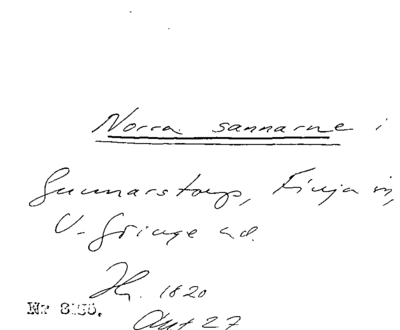 Norra sannarne i
Gunnarstorp, Finja sn,
V. Göinge hd.
1820
Akt 27
Nr